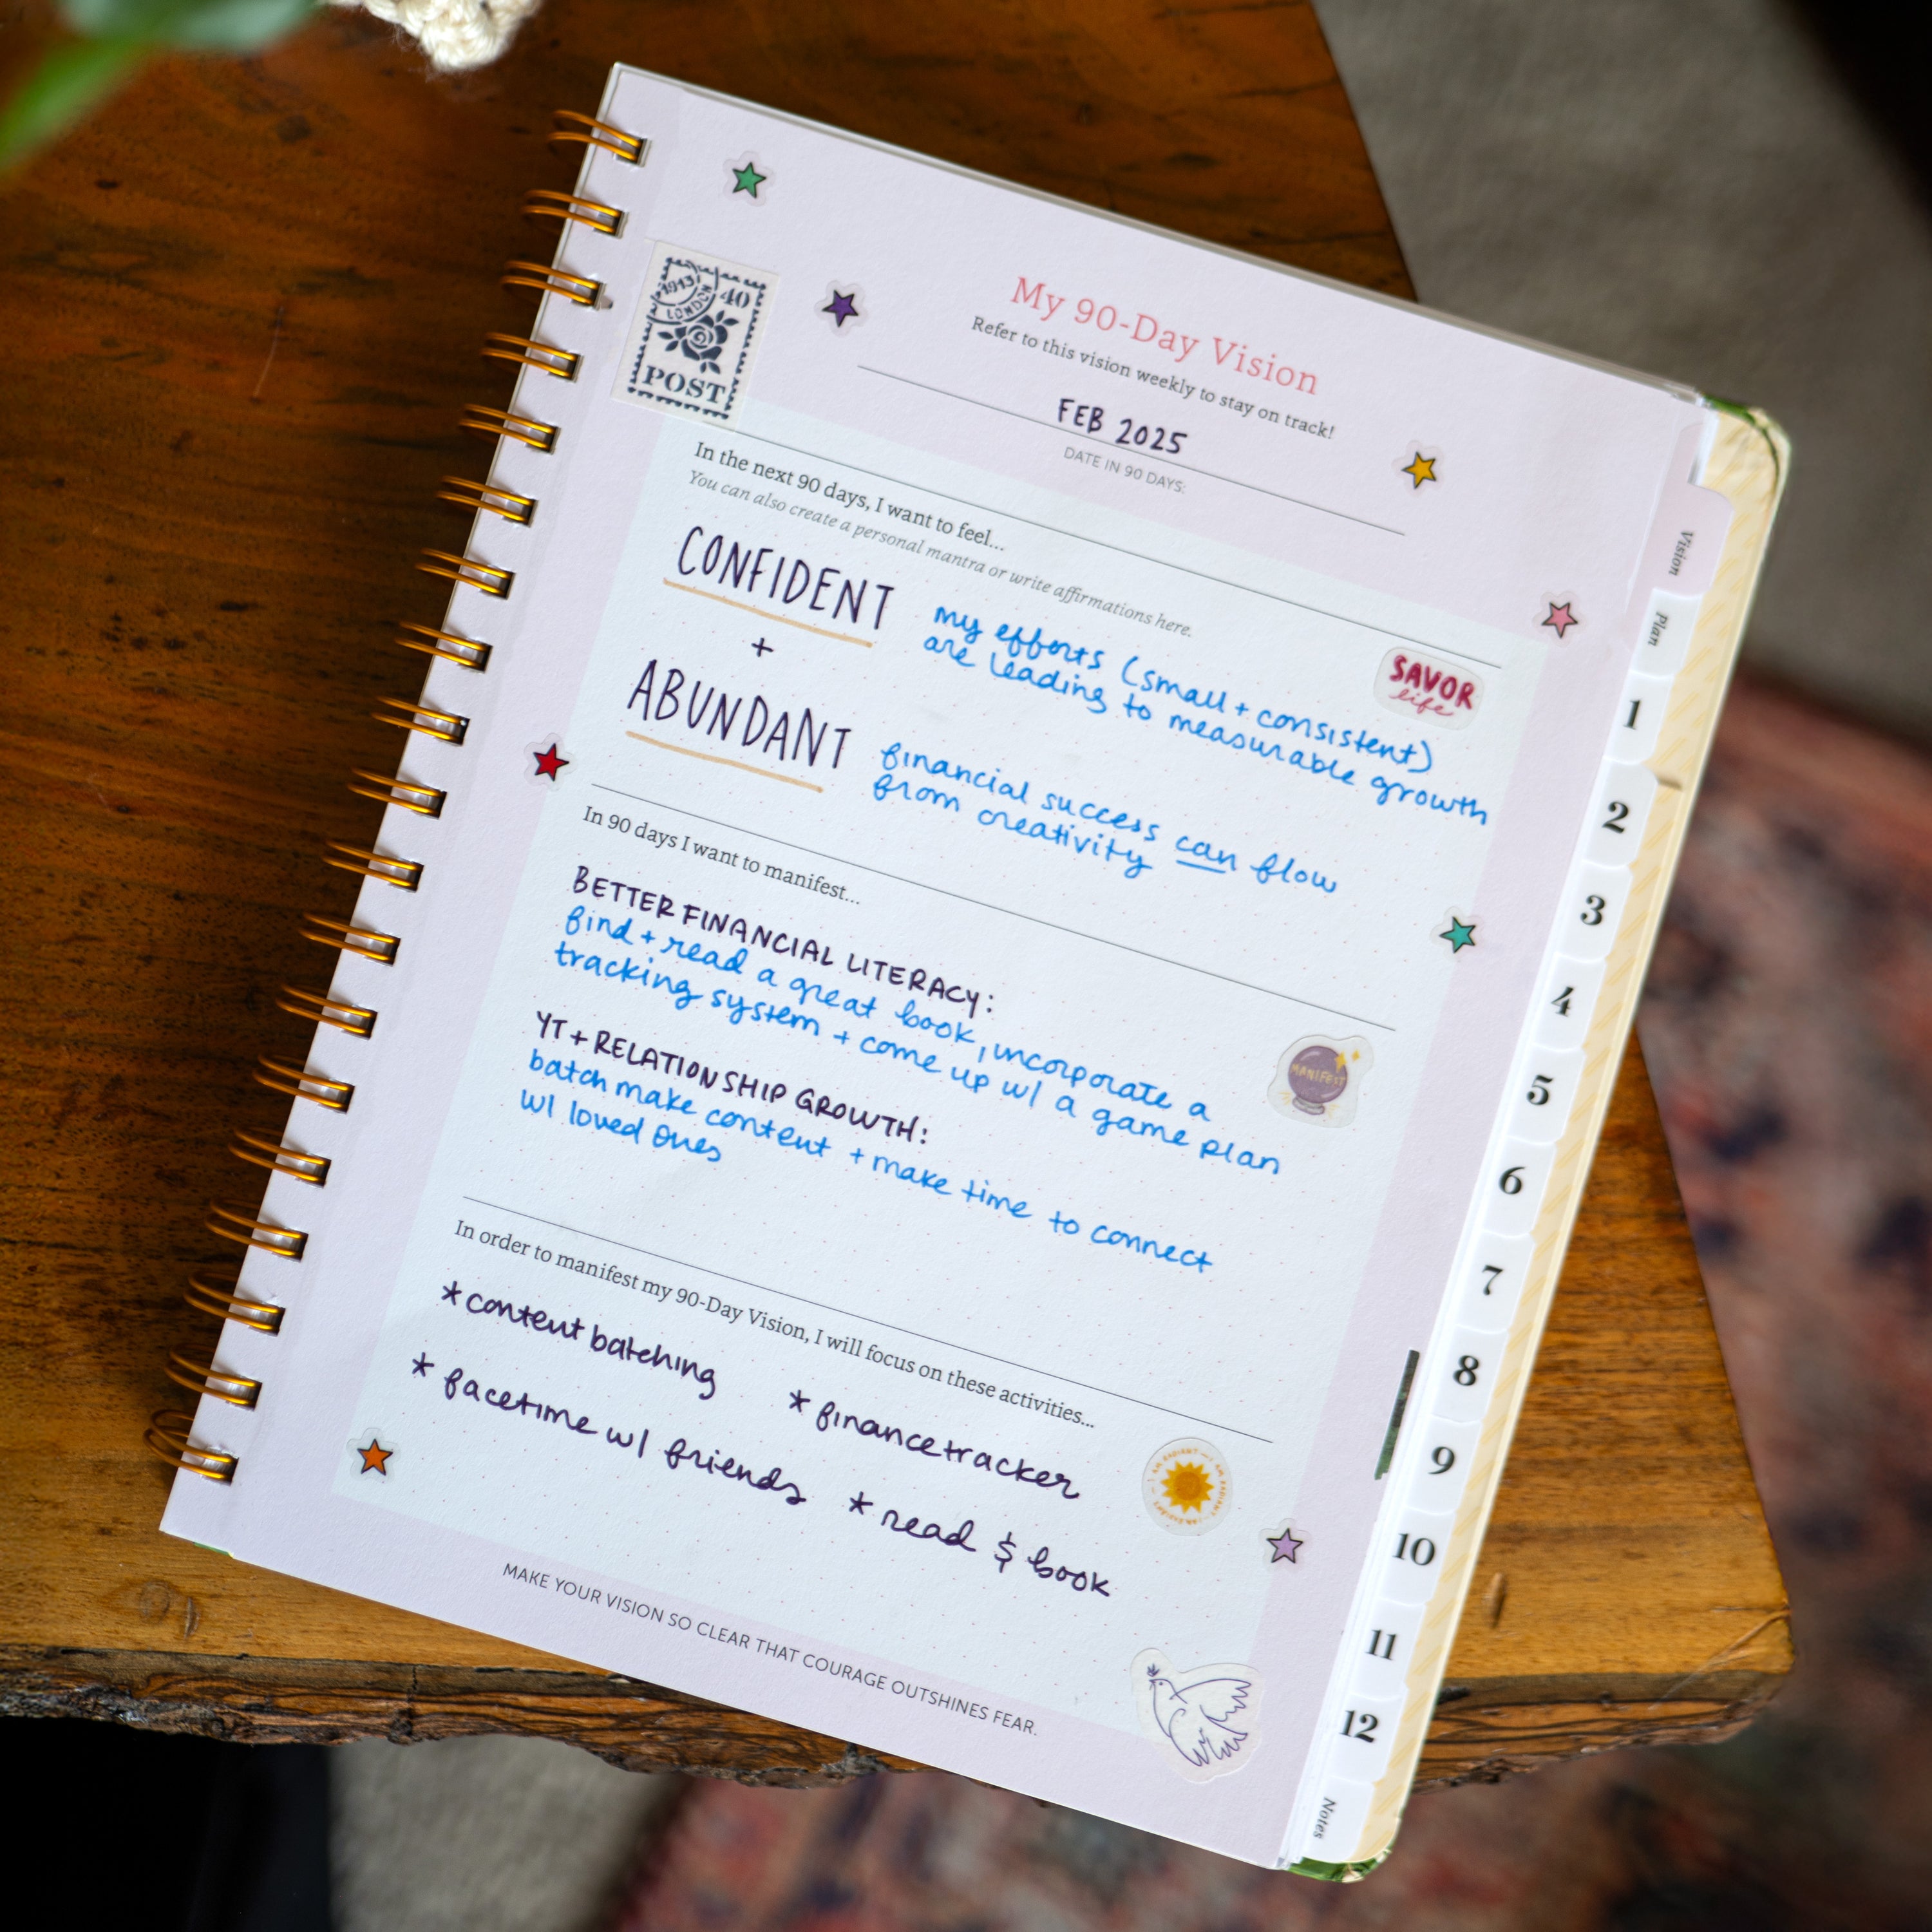 1913
LONDON
40
POST
My 90-Day Vision
Refer to this vision weekly to stay on track!
FEB 2025
DATE IN 90 DAYS:
In the next 90 days, I want to feel...
You can also create a personal mantra or write affirmations here.
CONFIDENT
+
ABUNDANT
my efforts (small + consistent)
are leading to measurable growth
SAVOR
life
financial success can flow
from creativity
In 90 days I want to manifest...
BETTER FINANCIAL LITERACY:
find + read a great book, incorporate a
tracking system + come up w/ a game plan
YT + RELATIONSHIP GROWTH:
batch make content + make time to connect
w/ loved ones
MANIFEST
In order to manifest my 90-Day Vision, I will focus on these activities...
*content batching
* finance tracker
* facetime w/ friends
* read $ book
I AM RADIANT
MAKE YOUR VISION SO CLEAR THAT COURAGE OUTSHINES FEAR.
Vision
Plan
1
2
3
4
5
6
7
8
9
10
11
12
Notes